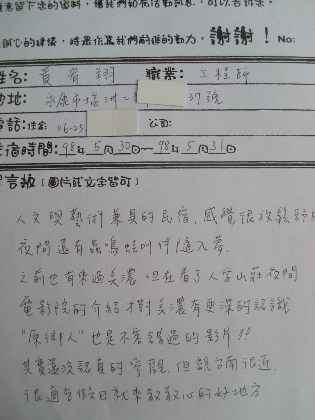 來留下您的資料，讓我們如有活動訊息，可以告訴您。
誠心的建議，將是作為我們前進的動力，謝謝！ No:
姓名：黃 翔 職業：工程師
地：永康市塩洲二 37號
電話：住家：06-25 公司：
宿時間：98年5月30日～98年5月31日
言板（圖片或文字皆可）
人文與藝術兼具的民宿，感覺很放鬆舒服
夜間還有蟲鳴蛙叫伴隨入夢。
之前也有來過美濃，但在看了人字山莊夜間
電影院的介紹才對美濃有更深的認識
"原鄉人"也是不容錯過的影片!!
其實還沒認真的 觀，但離台南很近
很適合假日就來散散心的好地方